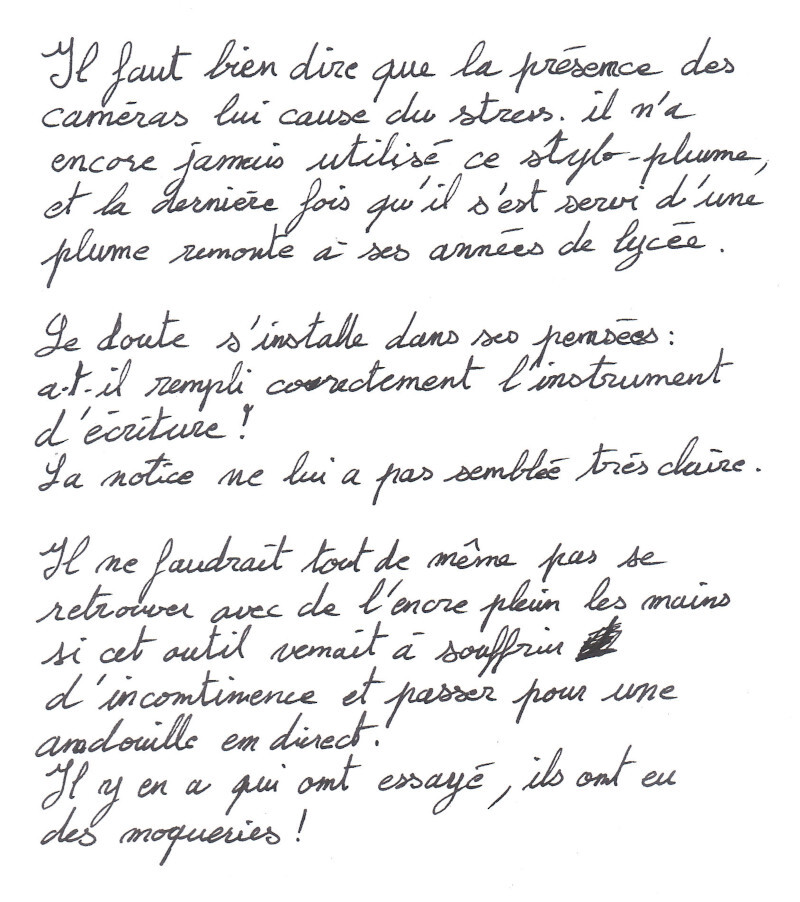 Il faut bien dire que la présence des
caméras lui cause du stress. il n'a
encore jamais utilisé ce stylo-plume,
et la dernière fois qu'il s'est servi d'une
plume remonte à ses années de lycée.
Le doute s'installe dans ses pensées :
a-t-il rempli correctement l'instrument
d'écriture ?
La notice ne lui a pas semblée très claire.
Il ne faudrait tout de même pas se
retrouver avec de l'encre plein les mains
si cet outil venait à souffrir
d'incontinence et passer pour une
andouille en direct.
Il y en a qui ont essayé, ils ont eu
des moqueries !